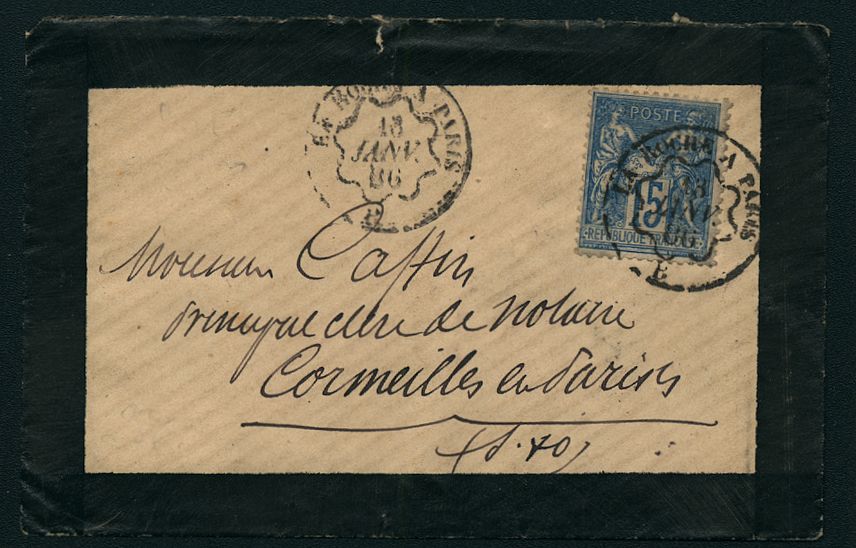 LA ROCHE A PARIS
13
JANV.
86
POSTE
15
REPUBLIQUE FRANCAISE
LA ROCHE A PARIS
13
JANV.
86
E
Monsieur Caffin
principal clerc de notaire
Cormeilles en Parisis
(S. &O)